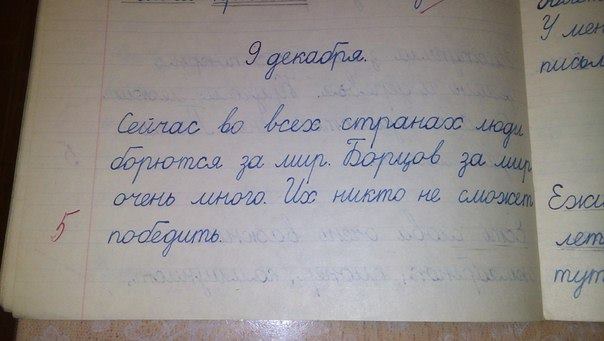 9 декабря.
Сейчас во всех странах люди
борются за мир. Борцов за мир
очень много. Их никто не сможет
5 победить.
У мен
письм
Ежи
лет
тут